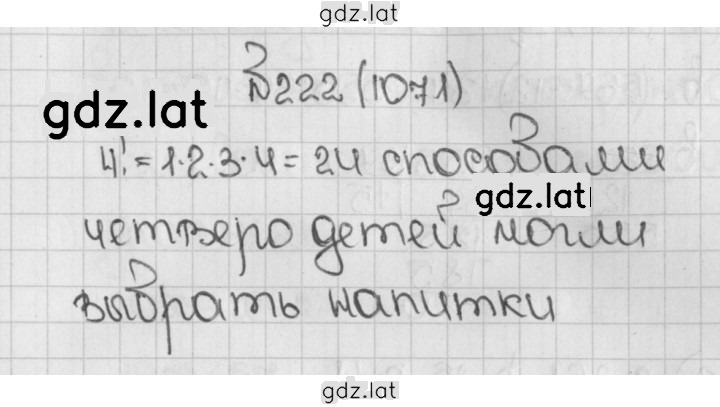 gdz.lat
№222 (1071)
gdz.lat
4! = 1·2·3·4 = 24 способами
gdz.lat
четверо детей могли
выбрать напитки
gdz.lat